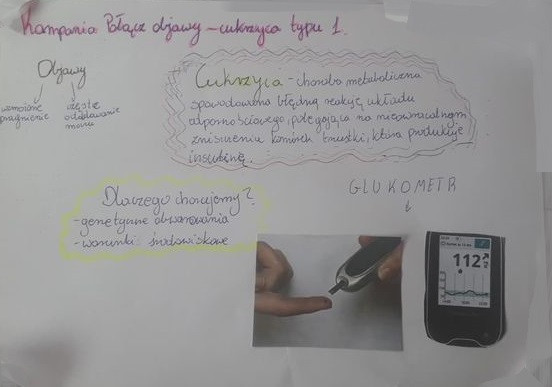 Kampania Połącz objawy - cukrzyca typu 1.
Objawy
wzmożone
pragnienie
częste
oddawanie
moczu
Cukrzyca - choroba metaboliczna
spowodowana błędną reakcją układu
odpornościowego, polegająca na nieodwracalnym
zniszczeniu komórek trzustki, która produkuje
insulinę.
Dlaczego chorujemy?
- genetyczne uwarunkowania
- warunki środowiskowe
GLUKOMETR
112